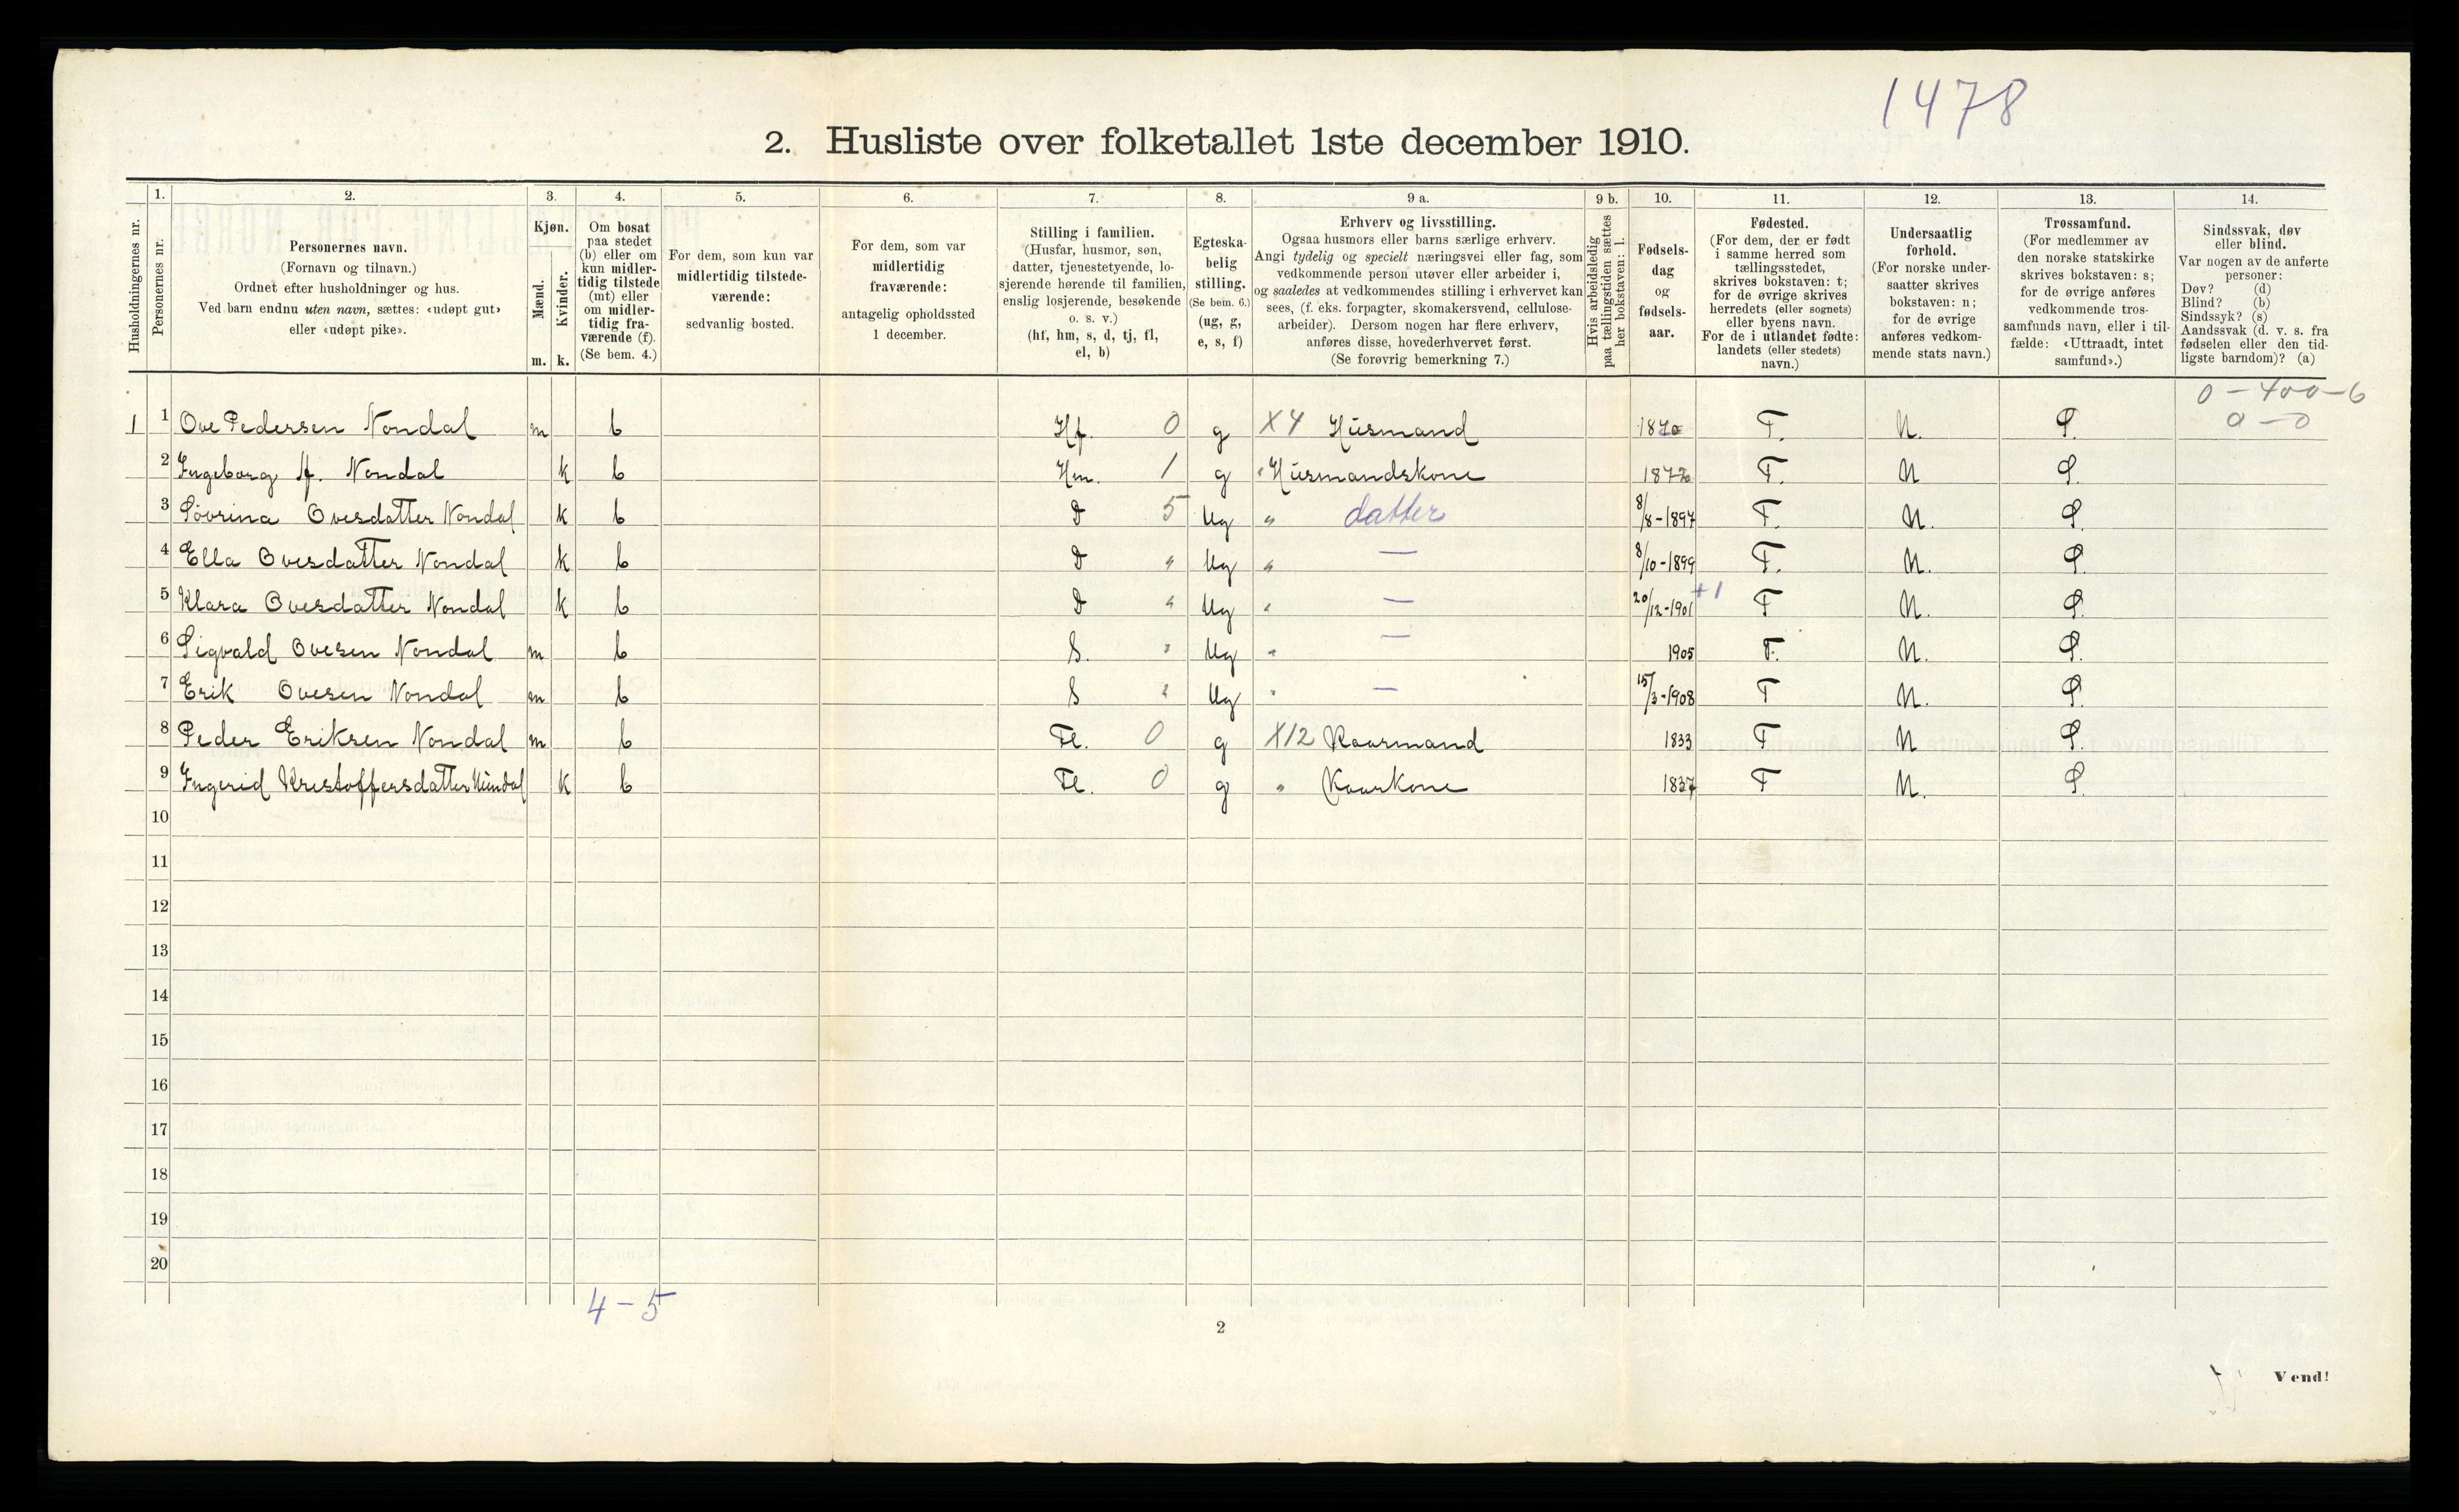 1478
2. Husliste over folketallet 1ste december 1910.
Husholdningernes nr.
1.
Personernes nr.
2.
Personernes navn.
(Fornavn og tilnavn.)
Ordnet efter husholdninger og hus.
Ved barn endnu uten navn, sættes: «udøpt gut»
eller «udøpt pike».
3.
Kjøn.
Mænd.
Kvinder.
m. k.
4.
Om bosat
paa stedet
(b) eller om
kun midler-
tidig tilstede
(mt) eller
om midler-
tidig fra-
værende (f).
(Se bem. 4.)
5.
For dem, som kun var
midlertidig tilstede-
værende:
sedvanlig bosted.
6.
For dem, som var
midlertidig
fraværende:
antagelig opholdssted
1 december.
7.
Stilling i familien.
(Husfar, husmor, søn,
datter, tjenestetyende, lo-
sjerende hørende til familien,
enslig losjerende, besøkende
o. s. v.)
(hf, hm, s, d, tj, fl,
el, b)
8.
Egteska-
belig
stilling.
(Se bem. 6.)
(ug, g,
e, s, f)
9 a.
Erhverv og livsstilling.
Ogsaa husmors eller barns særlige erhverv.
Angi tydelig og specielt næringsvei eller fag, som
vedkommende person utøver eller arbeider i,
og saaledes at vedkommendes stilling i erhvervet kan
sees, (f. eks. forpagter, skomakersvend, cellulose-
arbeider). Dersom nogen har flere erhverv,
anføres disse, hovederhvervet først.
(Se forøvrig bemerkning 7.)
9 b.
Hvis arbeidsledig
paa tællingstiden sættes
her bokstaven: l.
10.
Fødsels-
dag
og
fødsels-
aar.
11.
Fødested.
(For dem, der er født
i samme herred som
tællingsstedet,
skrives bokstaven: t;
for de øvrige skrives
herredets (eller sognets)
eller byens navn.
For de i utlandet fødte:
landets (eller stedets)
navn.)
12.
Undersaatlig
forhold.
(For norske under-
saatter skrives
bokstaven: n;
for de øvrige
anføres vedkom-
mende stats navn.)
13.
Trossamfund.
(For medlemmer av
den norske statskirke
skrives bokstaven: s;
for de øvrige anføres
vedkommende tros-
samfunds navn, eller i til-
fælde: «Uttraadt, intet
samfund».)
14.
Sindssvak, døv
eller blind.
Var nogen av de anførte
personer:
Døv? (d)
Blind? (b)
Sindssyk? (s)
Aandssvak (d. v. s. fra
fødselen eller den tid-
ligste barndom)? (a)
0 - 400 - 6
0 - 0
1 1 Ove Pedersen Nondal m b Hf. 0 g X4 Husmand 1870 T. N. S.
2 Ingeborg A. Nondal k b Hm. 1 g " Husmandskone 1872 T. N S.
3 Sovrina Ovesdatter Nondal k b D 5 Ug " datter 8/8-1897 T. N. S.
4 Ella Ovesdatter Nondal k b D " Ug " — 8/10-1899 T. N. S.
5 Klara Ovesdatter Nondal k b D " Ug " — 20/12-1901 +1 T N. S.
6 Sigvald Ovesen Nondal m b S. " Ug " — 1905 T. N. S.
7 Erik Ovesen Nondal m b S " Ug " — 15/3-1908 T N. S.
8 Peder Eriksen Nondal m b Fl. 0 g X12 Kaarmand 1833 T N S.
9 Ingerid Kristoffersdatter Nundal k b Fl. 0 g " Kaarkone 1837 T N. S.
10
11
12
13
14
15
16
17
18
19
20
4 - 5
2
Vend!